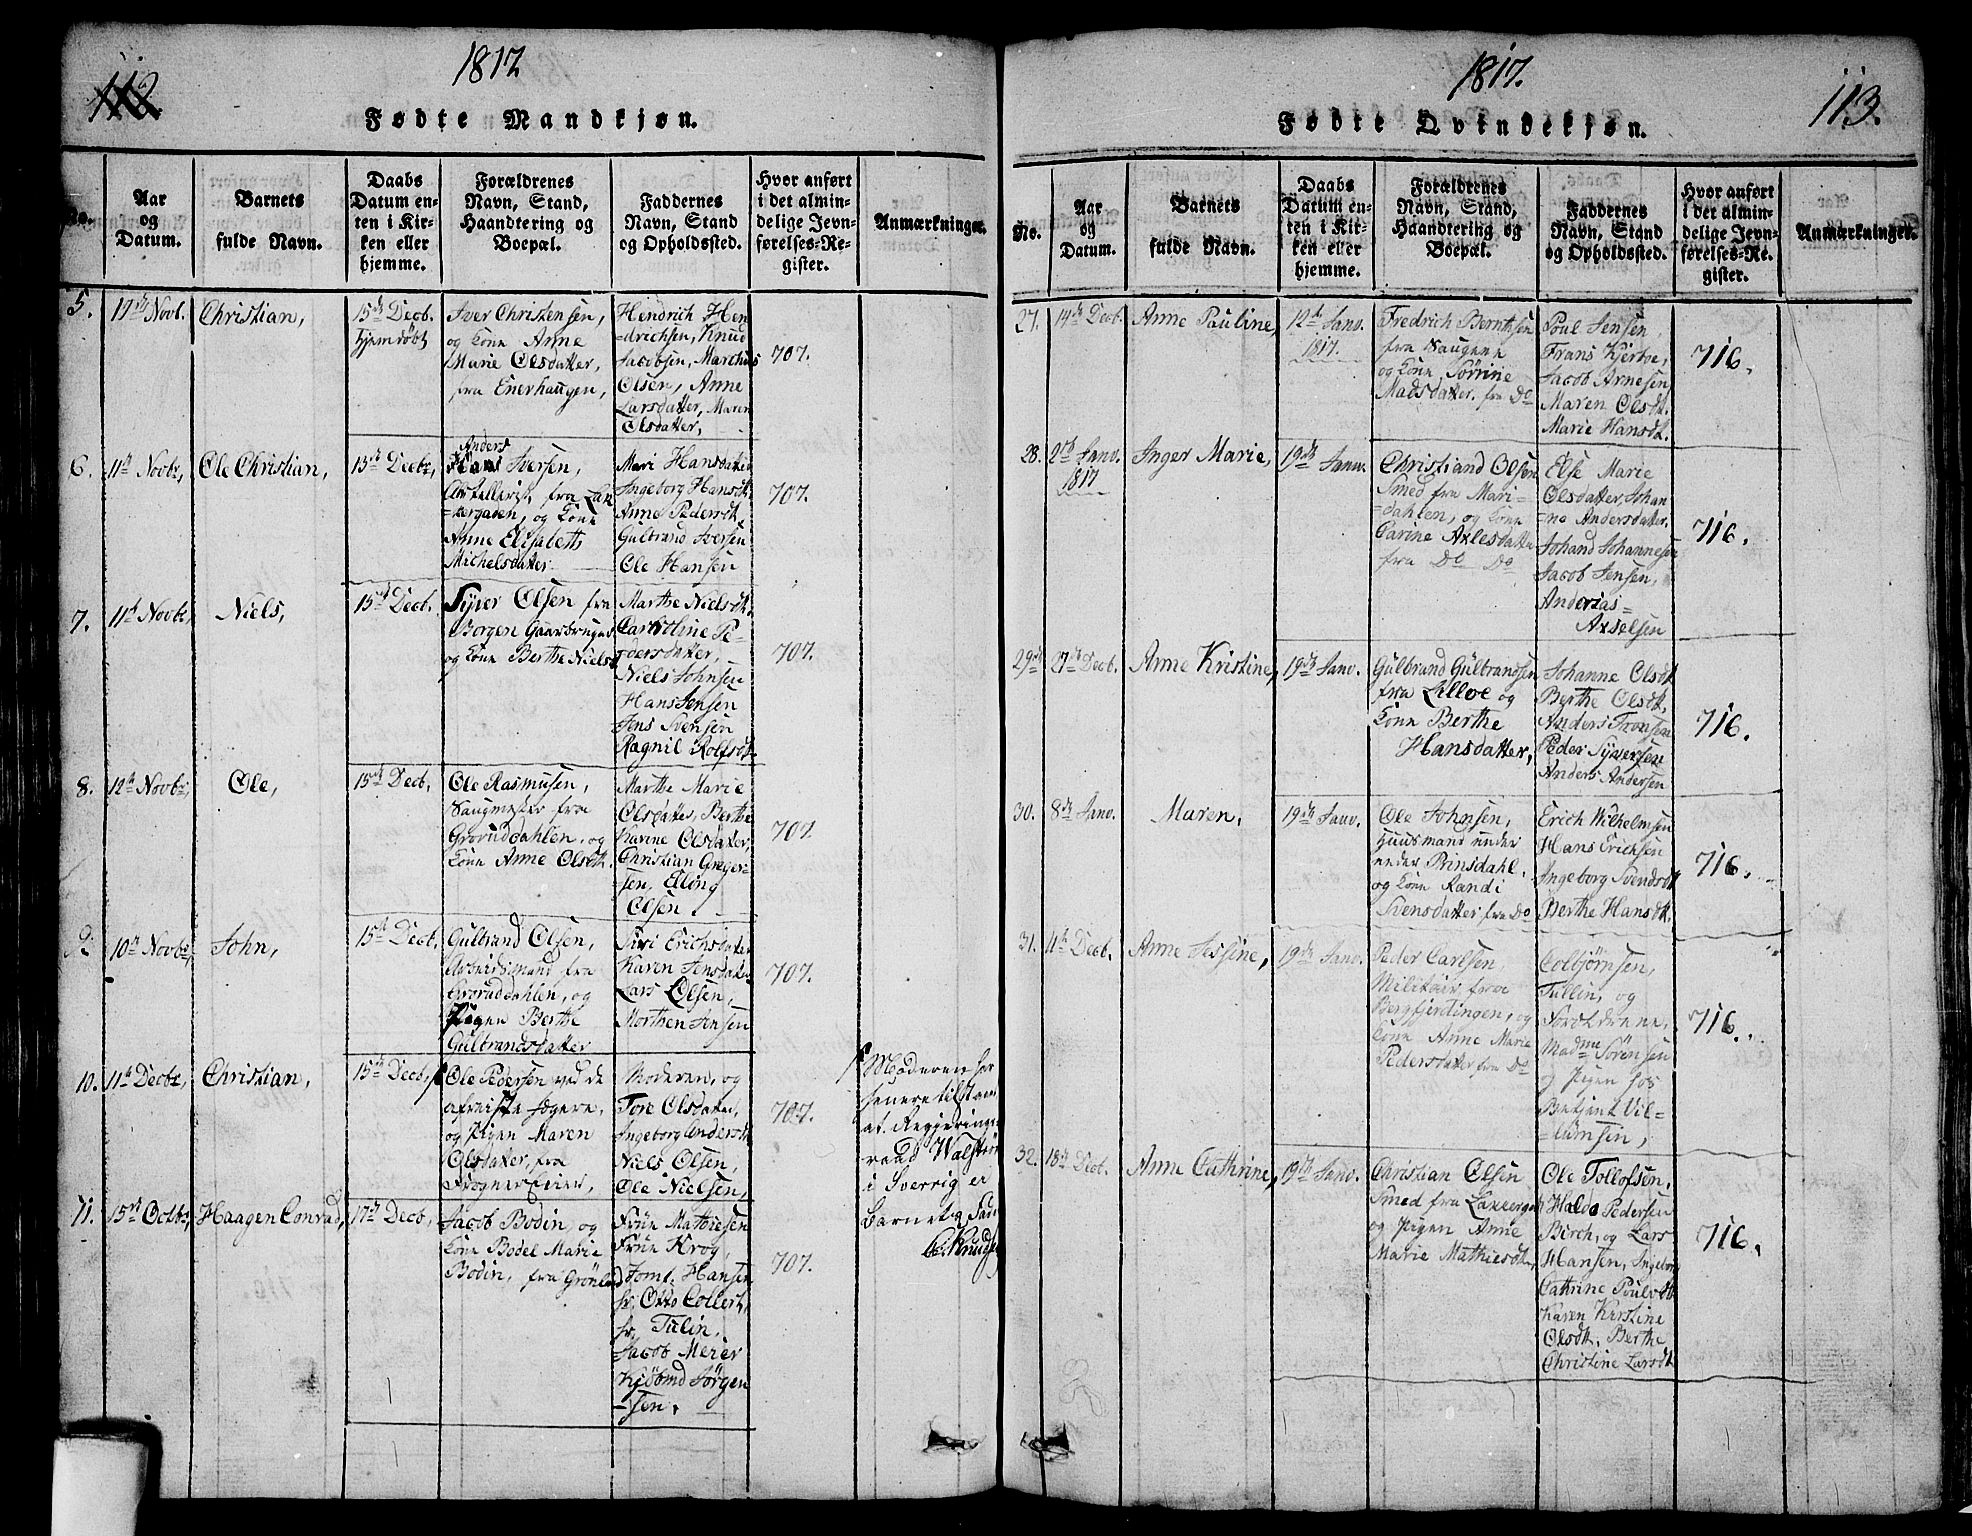 112.
1817
Fødte Mandkjøn.
No.
Aar
og
Datum.
Barnets
fulde Navn.
Daabs
Datum en-
ten i Kir-
ken eller
hjemme.
Forældrenes
Navn, Stand,
Haandtering og
Boepæl.
Faddernes
Navn, Stand
og Opholdssted.
Hvor anført
i det almin-
delige Jevn-
førelses-Re-
gister.
Anmærkninger.
5.
19de Novb.
Christian,
15de Decb.
hjemdøbt
Iver Christensen,
og Kone Anne
Marie Olsdatter,
fra Enerhaugen,
Hendrich Hen
drichsen, Knud
Jacobsen, Marthe
Olsen, Anne
Larsdatter, Maren
Olsdatter,
707.
6.
11te Novbr,
Ole Christian,
15de Decbr,
Anders
Hans Iversen,
fra Lak
kergaden, og Kone
Anne Elisabeth
Michelsdatter
Mari Hansdatter
Ingeborg Hansdtr
Anne Pedersdtr,
Gulbrand Iversen
Ole Hansen
707.
7.
11te Novbr,
Niels,
15de Decb.
Syver Olsen fra
Borgen Gaardbruger
og Kone Berthe Nielsd
Marthe Nielsdtr.
Caroline Pe-
dersdatter,
Niels Johnsen
Hans Jensen
Jens Svensen
Ragnil Rolfsdtr
707.
8.
12te Novbr,
Ole,
15de Decb,
Ole Rasmusen,
Saugmester fra
Groruddahlen, og
Kone Anne Olsdtr.
Marthe Marie
Olsdatter, Berthe
Karine Olsdatter,
Christian Greger-
sen, Elling
Olsen
707.
9.
10de Novbr,
John,
15de Decb.
Gulbrand Olsen,
Arbeidsmand fra
Groruddahlen, og
Pigen Berthe
Gulbrandsdatter
Siri Erichsdatter
Karen Jensdatter
Lars Olsen,
Morthen Jensen
707.
10.
11te Decbr,
Christian,
15de Decb,
Ole Pedersen ved de
afreiste Jægere,
og Pigen Maren
Olsdatter, fra
Frognereier,
Moderen, og
Tore Olsdatter,
Ingeborg Andersdtr
Niels Olsen,
Ole Nielsen,
707.
Moderen har
senere tilstaaet
at Regjerings
raad Walstrøm
i Sverrig er
Barnets Fader
11.
15de Octbr,
Haagen Conrad,
17de Decb,
Jacob Bodin og
Kone Bodel Marie
Bodin, fra Grønland
Frue Mathiesen
Frue Krog,
Jomf. Hansen
hr. Otto Collert,
hr. Tulin,
Jacob Meier
Kjøbmd Jørgen
sen.
707.
1817.
113.
Fødte Qvindekjøn.
No.
Aar
og
Datum.
Barnets
fulde Navn.
Daabs
Datum en-
ten i Kir-
ken eller
hjemme.
Forældrenes
Navn, Stand,
Haandtering og
Boepæl.
Faddernes
Navn, Stand
og Opholdssted.
Hvor anført
i det almin-
delige Jevn-
førelses-Re-
gister.
Anmærkninger.
27.
14de Decb.
Anne Pauline,
12te Janv.
1817.
Fredrich Berntsen
fra Haugene
og Kone Sørrine
Madsdatter. fra Do
Poul Jensen
Frans Kjerbe,
Jacob Arnesen,
Maren Olsdtr.
Marie Hansdtr.
716.
28.
2den Janv.
1817
Inger Marie,
19de Janv.
Christiand Olsen
Smed fra Mari-
dahlen, og Kone
Carine Axlesdatter
fra Do Do
Else Marie
Olsdatter, Johan
ne Andersdatter
Johand Johannesen
Jacob Jensen,
Anderias
Axselsen
716.
29de
27de Decb.
Anne Kristine,
19de Janv.
Gulbrand Gulbrandsen
fra Lilloe og
Kone Berthe
Hansdatter,
Johanne Olsdtr
Berthe Olsdtr,
Anders Fronsen
Peder Syversen
Anders Andersen
716.
30.
8de Janv.
Maren,
19de Janv.
Ole Johnsen,
Huusmand under
under Prinsdahl.
og Kone Randi
Svensdatter fra Do
Erich Wilhelmsen
Hans Erichsen
Ingeborg Svendsdtr
Berthe Hansdtr.
716.
31.
11te Decb.
Anne Jessine,
19de Janv.
Peder Carlsen,
Militair fra
Bergfjerdingen, og
Kone Anne Marie
Pedersdatter fra Do
Colbjørnsen,
Tullin, og
Forældrene,
Madme Sørensen
og Pigen hos
Betjent Vil-
lumsen,
716.
32.
18de Decb.
Anne Cathrine,
19de Janv.
Christian Olsen
Smed fra Lakkergd
og Pigen Anne
Marie Mathiesdtr,
Ole Tollofsen,
Halda Pedersen
Birch, og Lars
Hansen, Ingeborg
Cathrine Poulsdtr
Karen Kirstine
Olsdtr. Berthe
Christine Larsdtr
716.